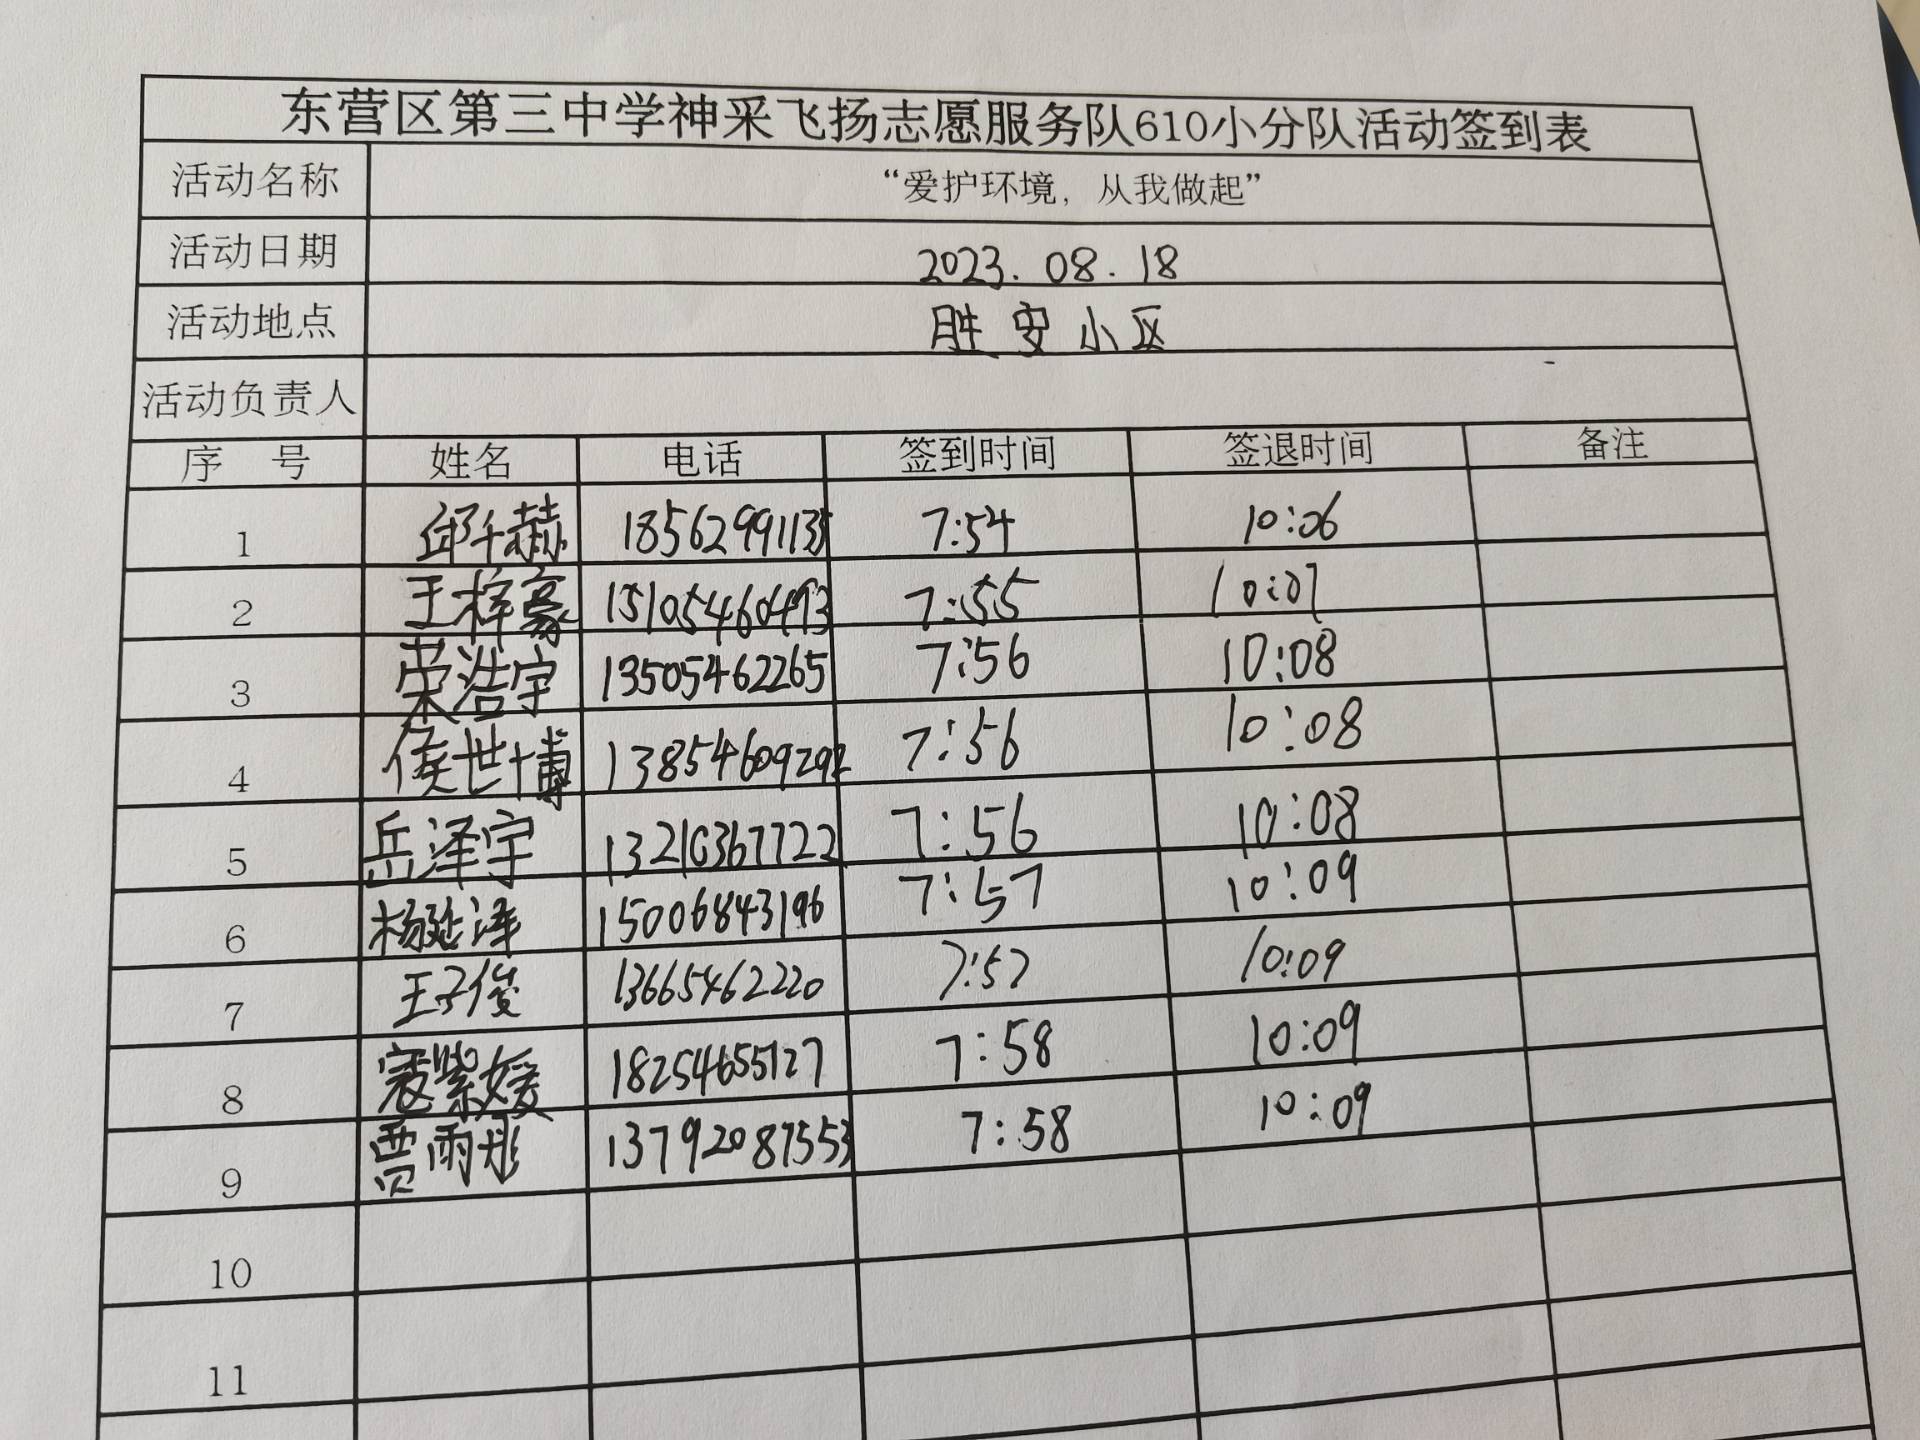 东营区第三中学神采飞扬志愿服务队610小分队活动签到表
活动名称 “爱护环境，从我做起”
活动日期 2023.08.18
活动地点 胜安小区
活动负责人
序 号 姓名 电话 签到时间 签退时间 备注
1 邱千赫 18562991135 7:54 10:06
2 王梓豪 15105460493 7:55 10:07
3 荣浩宇 13505462265 7:56 10:08
4 侯世博 13854609292 7:56 10:08
5 岳泽宇 13210367722 7:56 10:08
6 杨延泽 15006843196 7:57 10:09
7 王子俊 13665462220 7:57 10:09
8 寇紫媛 18254655127 7:58 10:09
9 贾雨彤 13792087553 7:58 10:09
10
11